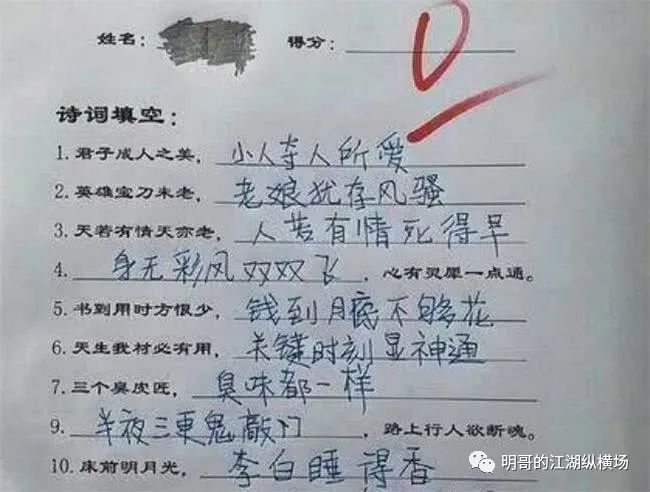 姓名： 得分： 0
诗词填空：
1.君子成人之美，小人夺人所爱
2.英雄宝刀未老，老娘犹存风骚
3.天若有情天亦老，人若有情死得早
4.身无彩凤双双飞，心有灵犀一点通。
5.书到用时方恨少，钱到月底不够花
6.天生我材必有用，关键时刻显神通
7.三个臭皮匠，臭味都一样
9.半夜三更鬼敲门，路上行人欲断魂。
10.床前明月光，李白睡得香
明哥的江湖纵横场